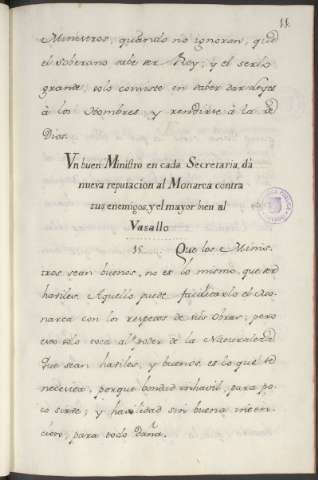 11
Ministros, quando no ignoran, que
el Soberano sabe ser Rey; y el serlo
grande, solo consiste en saber dar Leyes
à los Hombres y rendirse à la de
Dios.
Vn buen Ministro en cada Secretaria, dà
nueva reputacion al Monarca contra
sus enemigos, y el mayor bien al
Vasallo
15. Que los Minis-
tros sean buenos, no es lo mismo, que ser
habiles. Aquello puede facilitarlo el Mo-
narca con los respetos de sus obras; pero
esto solo toca al poder de la Naturaleza
Que sean habiles, y buenos, es lo que se
necesita, porque bondad inhavil, para po-
co sirve; y havilidad sin buena inten-
cion, para todo daña.